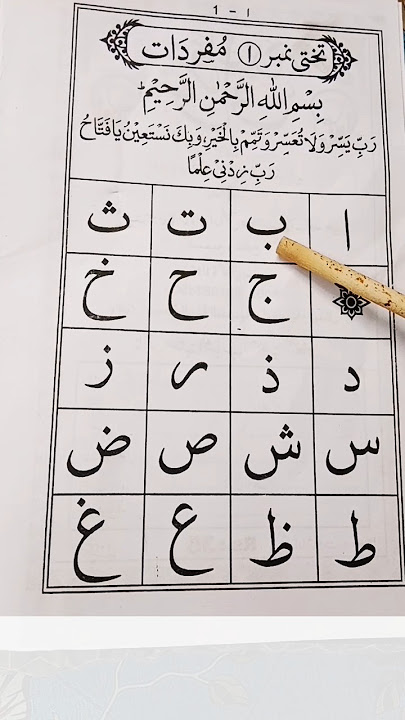 1 - ا
تختی نمبر ۱ مُفرَدَات
بِسْمِ اللهِ الرَّحْمٰنِ الرَّحِيْمِ
رَبِّ يَسِّرْ وَلَا تُعَسِّرْ وَتَمِّمْ بِالْخَيْرِ، وَبِكَ نَسْتَعِيْنُ يَا فَتَّاحُ
رَبِّ زِدْنِیْ عِلْمًا
ا ب ت ث
ج ح خ
د ذ ر ز
س ش ص ض
ط ظ ع غ